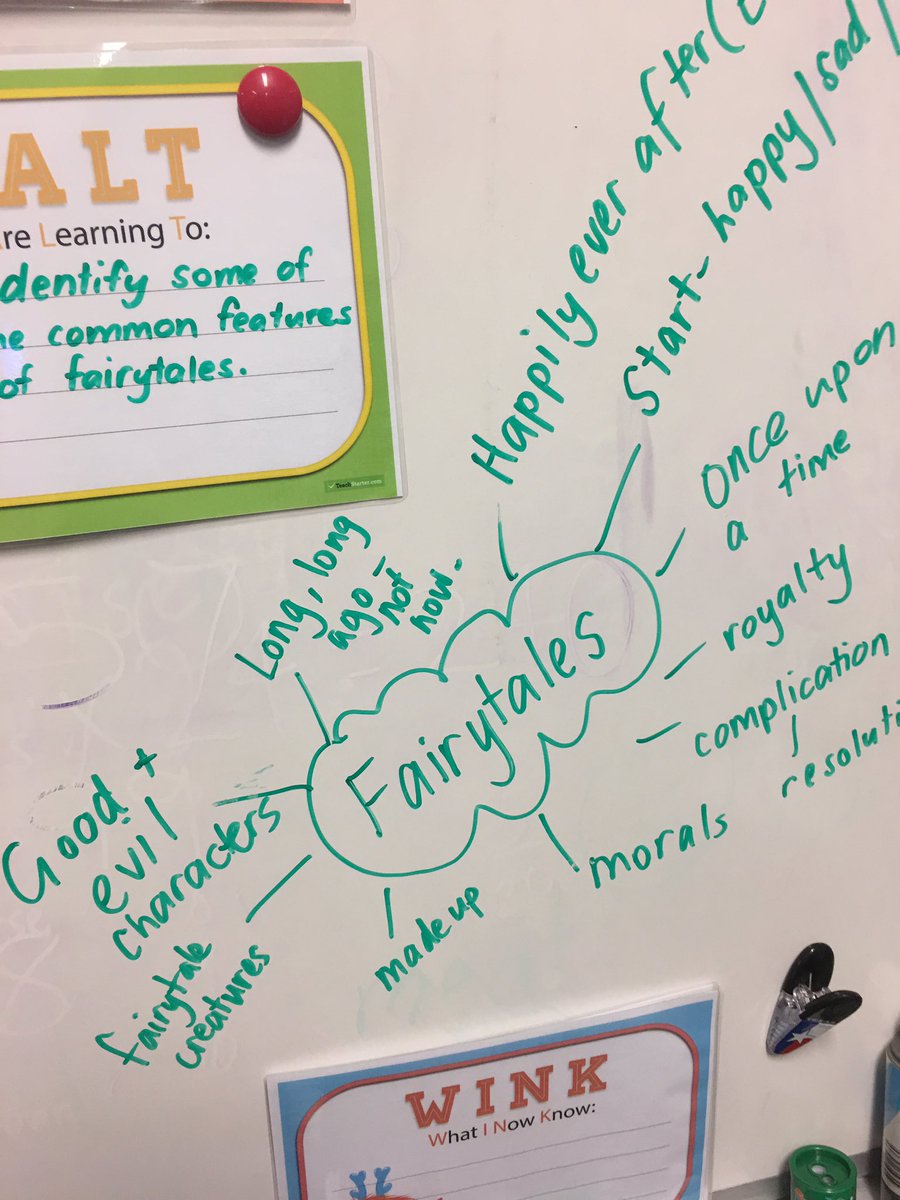 ALT
re Learning To:
dentify some of
he common features
of fairytales.
TeachStarter.com
Happily ever after (
Start- happy/sad/
Once upon
a time
royalty
complication
resoluti
morals
made up
fairytale
creatures
Good +
evil
characters
Long, long
ago -
not
now.
Fairytales
WINK
What I Now Know: